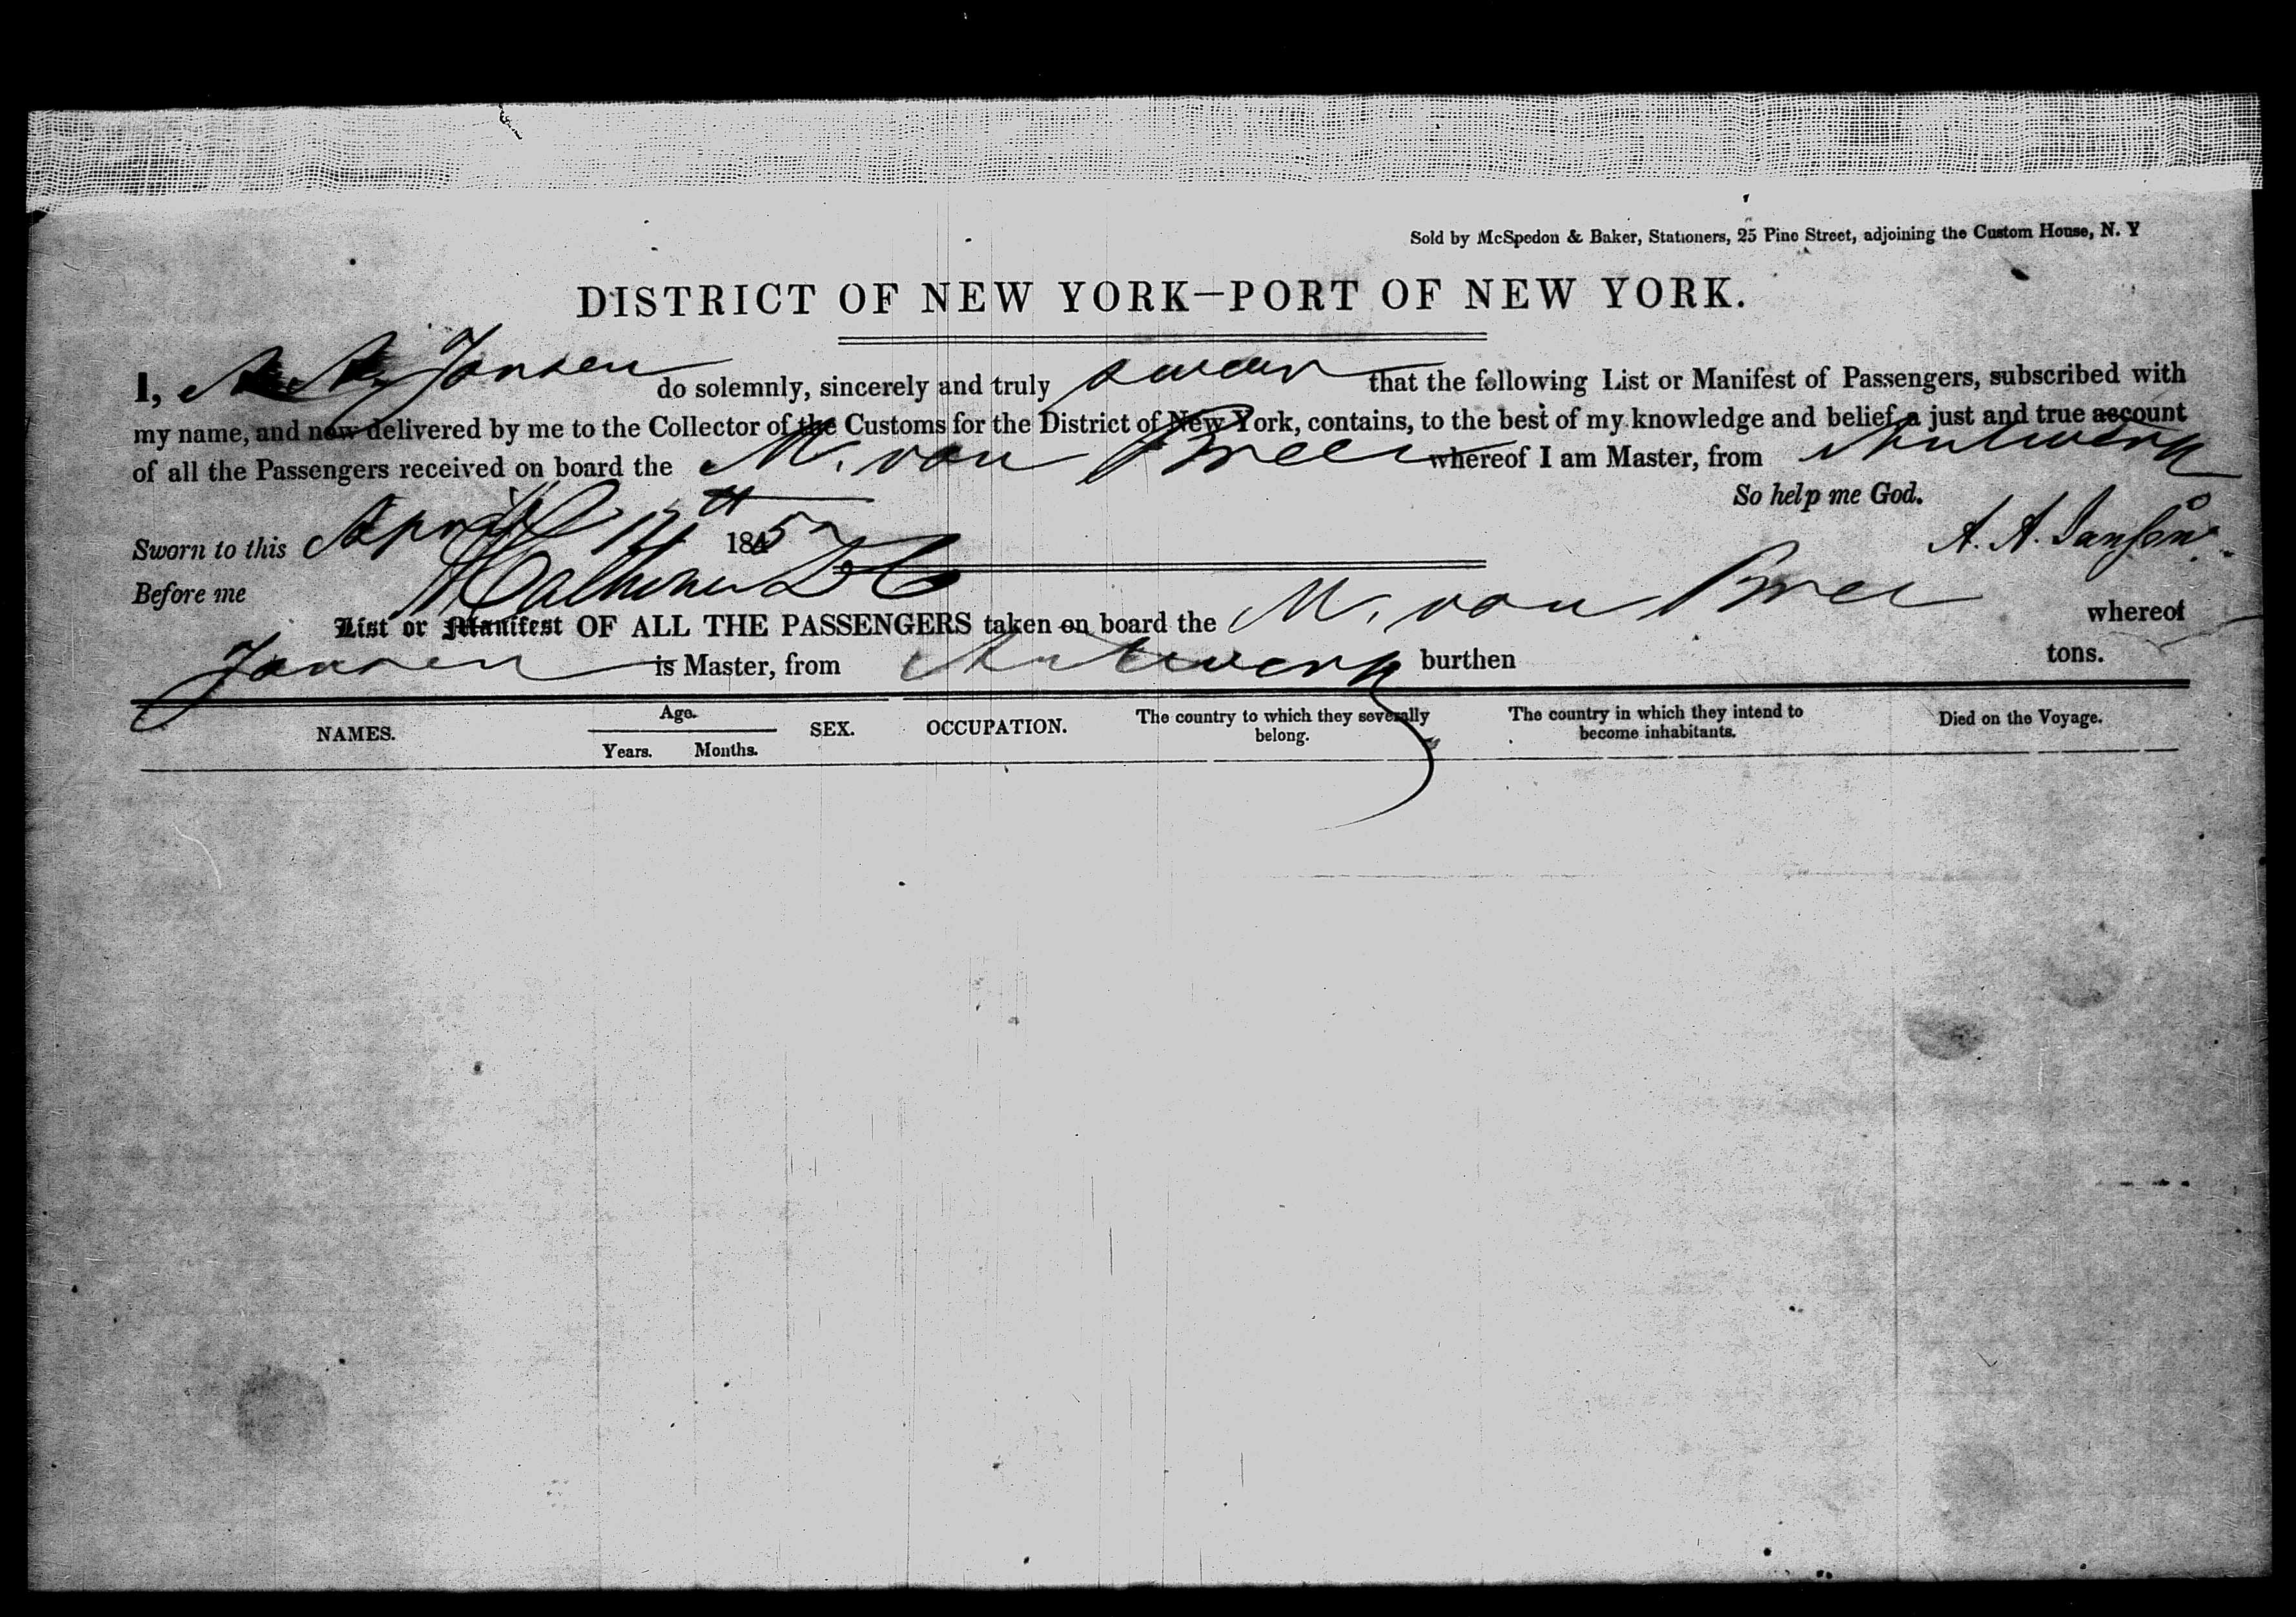 Sold by McSpedon & Baker, Stationers, 25 Pine Street, adjoining the Custom House, N. Y
DISTRICT OF NEW YORK—PORT OF NEW YORK.
I, A. A. Jansen do solemnly, sincerely and truly swear that the following List or Manifest of Passengers, subscribed with
my name, and now delivered by me to the Collector of the Customs for the District of New York, contains, to the best of my knowledge and belief a just and true account
of all the Passengers received on board the M. van Bree whereof I am Master, from Antwerp
So help me God.
Sworn to this April 185 A. A. Jansen
Before me
List or Manifest OF ALL THE PASSENGERS taken on board the M. van Bree whereof
Jansen is Master, from Antwerp burthen tons.
NAMES. Age. SEX. OCCUPATION. The country to which they severally belong. The country in which they intend to become inhabitants. Died on the Voyage.
Years. Months.